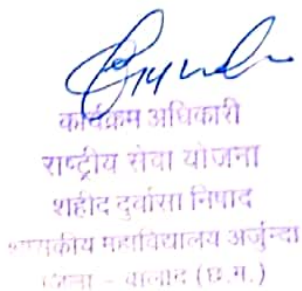 कार्यक्रम अधिकारी
राष्ट्रीय सेवा योजना
शहीद दुर्वासा निषाद
शासकीय महाविद्यालय अर्जुन्दा
जिला - बालोद (छ.ग.)